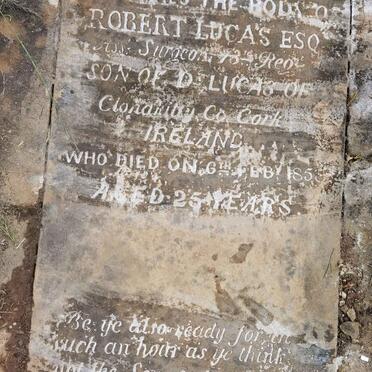 THE BODY O
ROBERT LUCAS ESQ
Ass. Surgeon 73rd Reg
SON OF Dr LUCAS OF
Clonakilty Co. Cork
IRELAND
WHO DIED ON 6TH FEBY 185
AGED 25 YEARS
Be ye also ready for in
such an hour as ye think
not the